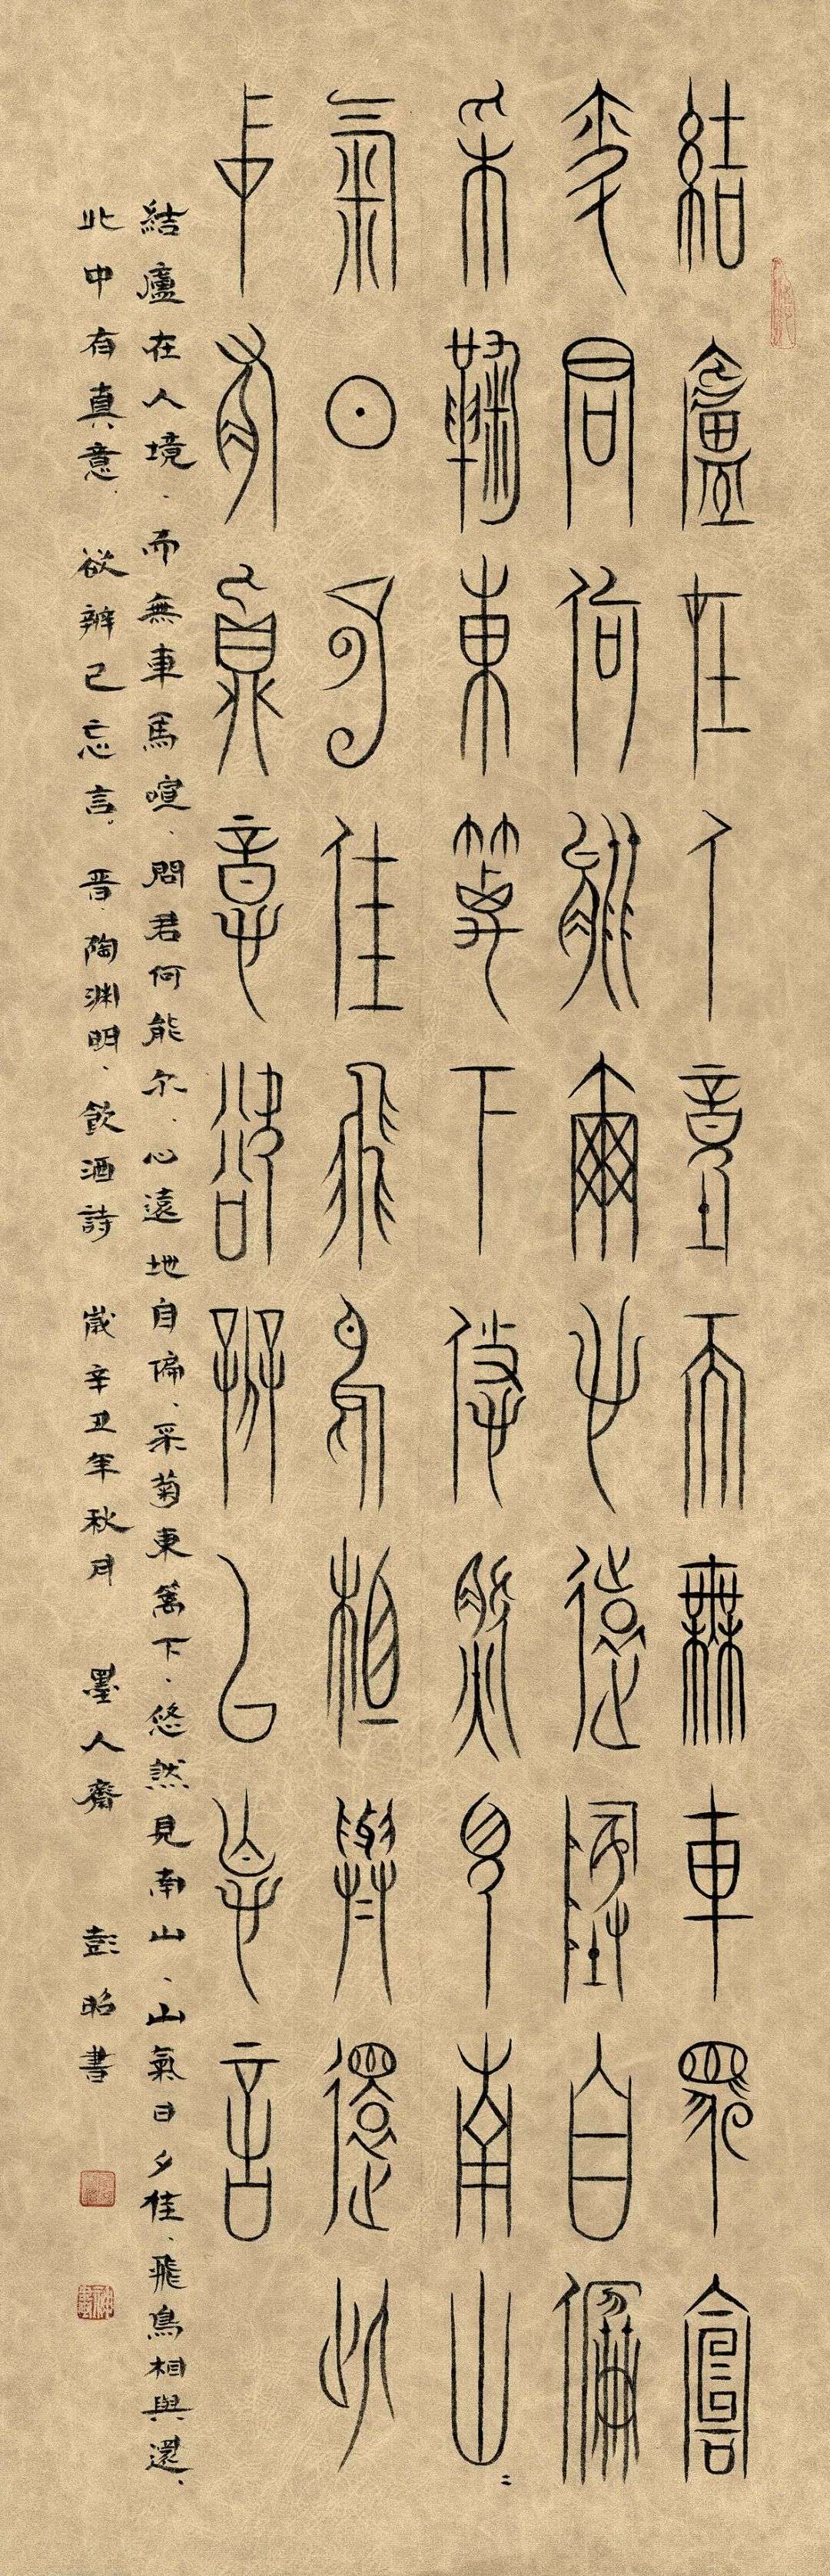 結廬在人境而無車馬喧
問君何能爾心遠地自偏
采菊東籬下悠然見南山〻
氣日夕佳飛鳥相與還此
中有真意欲辨已忘言
結廬在人境、而無車馬喧、問君何能尔、心遠地自偏、采菊東篱下、悠然見南山、山氣日夕佳、飛鳥相與還、
此中有真意、欲辨已忘言。晉、陶渊明、飲酒詩 歲辛丑年秋月 墨人齋 彭昭書